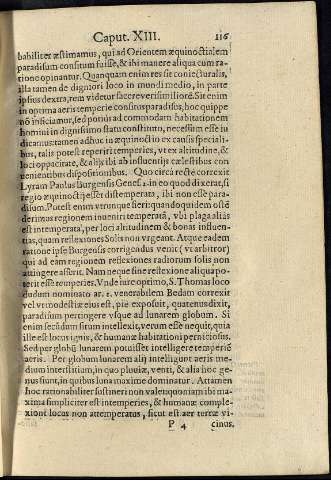 Caput. XIII. 116
habiliter æstimamus, qui ad Orientem æquinoctialem
paradisum consitum fuisse, & ibi manere aliqua cum ra-
tione opinantur. Quanquam enim res sit coniecturalis,
illa tamen de digniori loco in mundi medio, in parte
ipsius dextra, rem videtur facere verisimiliorē. Sit enim
in optima aeris temperie consitus paradisus, hoc quippe
nō inficiamur, sed potius ad commodam habitationem
homini in dignissimo statu constituto, necessum esse iu
dicamus: tamen adhuc in æquinoctio ex causis speciali-
bus, talis potest reperiri temperies, vt ex altitudine, &
loci opacitate, & alijs ibi ab influentijs cælestibus con
uenientibus dispositionibus. Quo circa recte correxit
Lyram Paulus Burgensis Genes. 2. in eo quod dixerat, si
regio æquinoctij esset distemperata, ibi non esse para-
disum. Potest enim vtrunque fieri: quandoquidem ostē
derimus regionem inueniri temperatā, vbi plaga aliàs
est intemperata, per loci altitudinem & bonas influen-
tias, quam reflexiones Solis non vrgeant. Atque eadem
ratione ipse Burgensis corrigendus venit (vt arbitror)
qui ad eam regionem reflexiones radiorum solis non
attingere asserit. Nam neque sine reflexione aliqua po-
terit esse temperies. Vnde iure optimo, S. Thomas loco
dudum nominato ar. 1. venerabilem Bedam correxit
vel vt modestiæ eius est, piè exposuit, quatenus dixit,
paradisum pertingere vsque ad lunarem globum. Si
enim secūdum situm intellexit, verum esse nequit, quia
ille est locus ignis, & humanæ habitationi perniciosus.
Sed per globū lunarem potuisset intelligere temperiē
aeris. Per globum lunarem alij intelligunt aeris me-
dium interstitium, in quo pluuiæ, venti, & alia hoc ge-
nus fiunt, in quibus luna maximè dominatur. Attamen
hoc rationabiliter sustineri non valet: quoniam ibi ma-
xima simpliciter est intemperies, & humanæ comple-
xioni locus non attemperatus, sicut est aer terræ vi-
P 4 cinus.